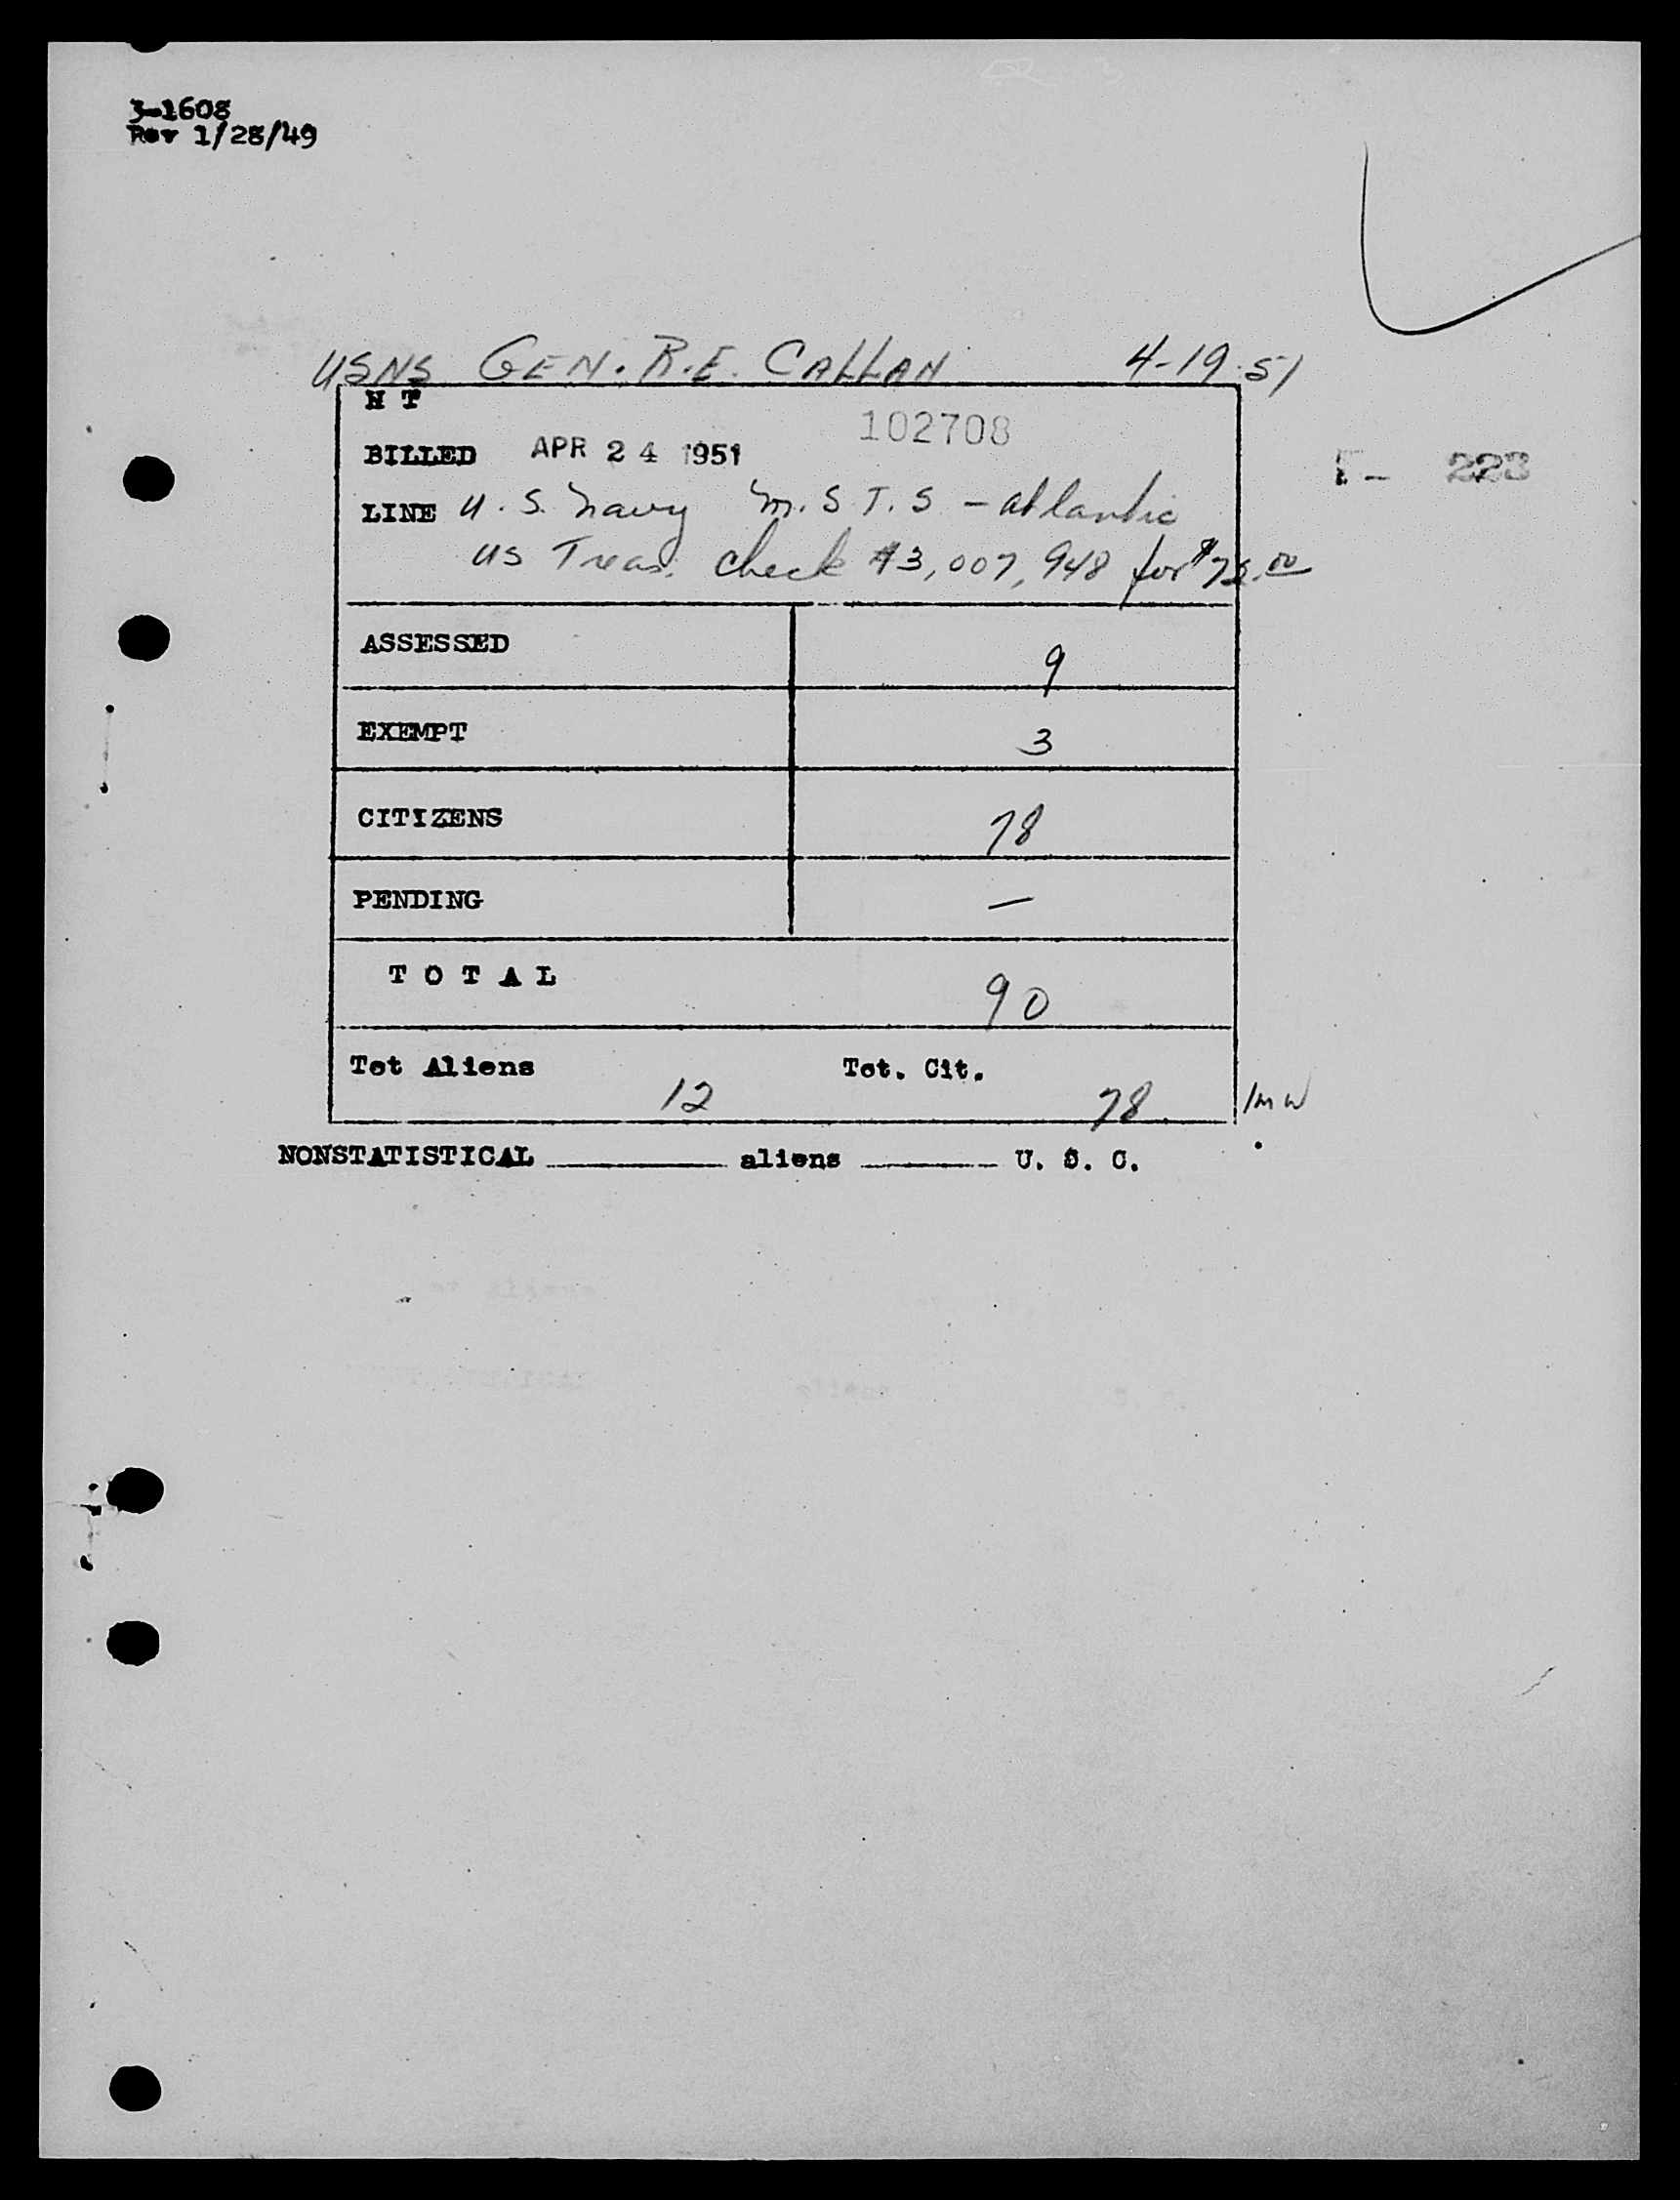 3-1608
Rev 1/28/49
USNS GEN. R.E. CALLAN 4-19-51
H T
102708
BILLED APR 24 1951
223
LINE U.S. Navy M.S.T.S - Atlantic
US Treas. check #3,007,948 for
ASSESSED 9
EXEMPT 3
CITIZENS 78
PENDING —
TOTAL 90
Tot Aliens 12 Tot. Cit. 78 /mw
NONSTATISTICAL ______ aliens ______ U. S. C.